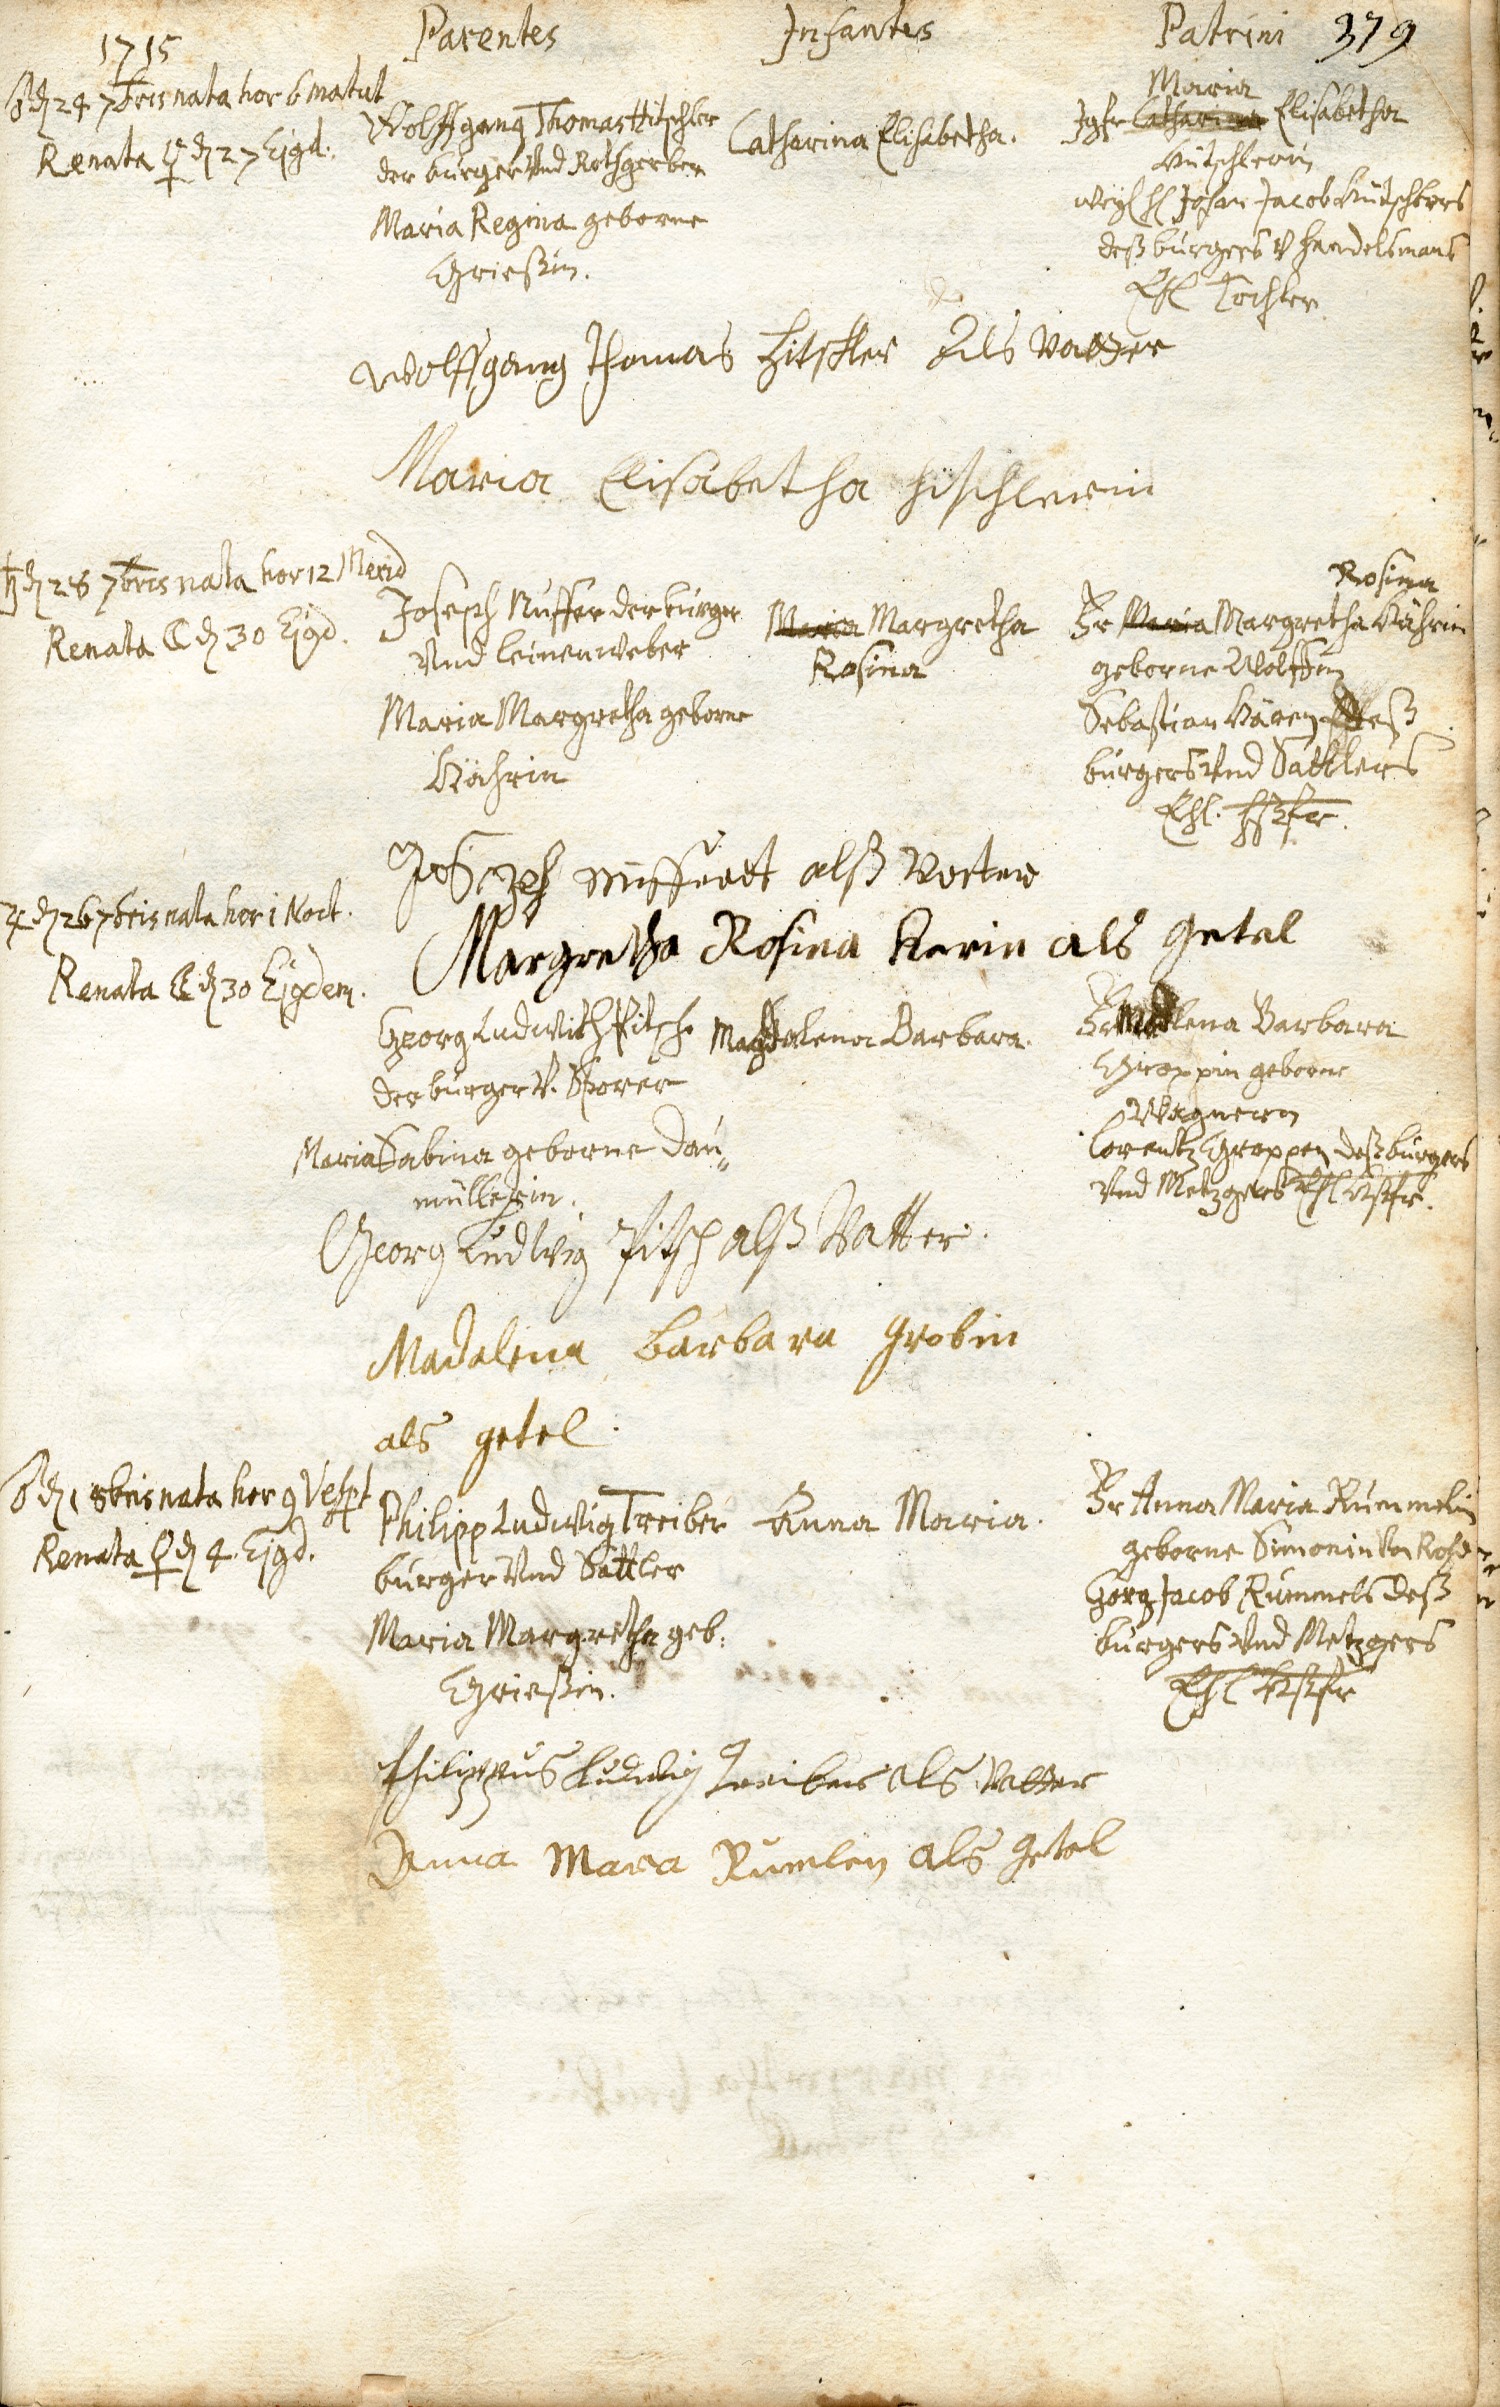 1715
Parentes
Infantes
Patrini 379
♂ d 24 7bris nata hor 6 matut
Renata ♀ d 27 Ejgd.
Wolffgang Thomas Hitschler
der burger Vnd Rothgerber
Maria Regina geborne
Grießin.
Catharina Elisabetha.
Maria
Jgfr Catharina Elisabetha
Hütschlerin
weyl H Johan Jacob Hütschlers
deß burgers V handelsmans
Ehl Tochter
wolffgang Thomas Hitschler Als vatter
Maria Elisabetha Hischlerin
♄ d 28 7bris nata hor 12 Merid
Renata ☾ d 30 Ejgd.
Joseph Nuffer der burger
Vnd leinenweber
Maria Margretha geborne
Kährin
Maria Margretha
Rosina
Rosina
Fr Maria Margretha Kährin
geborne Wolffin
Sebastian Kären deß
burgers Vnd Sattlers
Ehl. Hßfr.
Joseph nuffer alß Vatter
Margretha Rosina Kerin als getel
♃ d 26 7bris nata hor 1 Noct.
Renata ☾ d 30 Ejgdem.
Georg Ludwich Pitsch
der burger V. Sporer
Maria Sabina geborne Dau„
müllerin.
Magdalena Barbara.
Fr Madlena Barbara
Groppin geborne
Wagnern
Lorentz Groppen deß burgers
Vnd Metzgers Ehl Hßfr.
Georg Ludwig Pitsch alß Vatter.
Madalena barbara grobin
als getel.
♂ d 1 8bris nata hor 9 Vespt
Renata ♀ d 4. Ejgd.
Philipp Ludwig Treiber
burger Vnd Sattler
Maria Margretha geb:
Grießin.
Anna Maria.
Fr Anna Maria Rummelin
geborne Simonin
Georg Jacob Rummels deß
burgers Vnd Metzgers
Ehl Hßfr
Philippus Ludwig Treiber als Vatter
Anna Mara Rumlen als getel